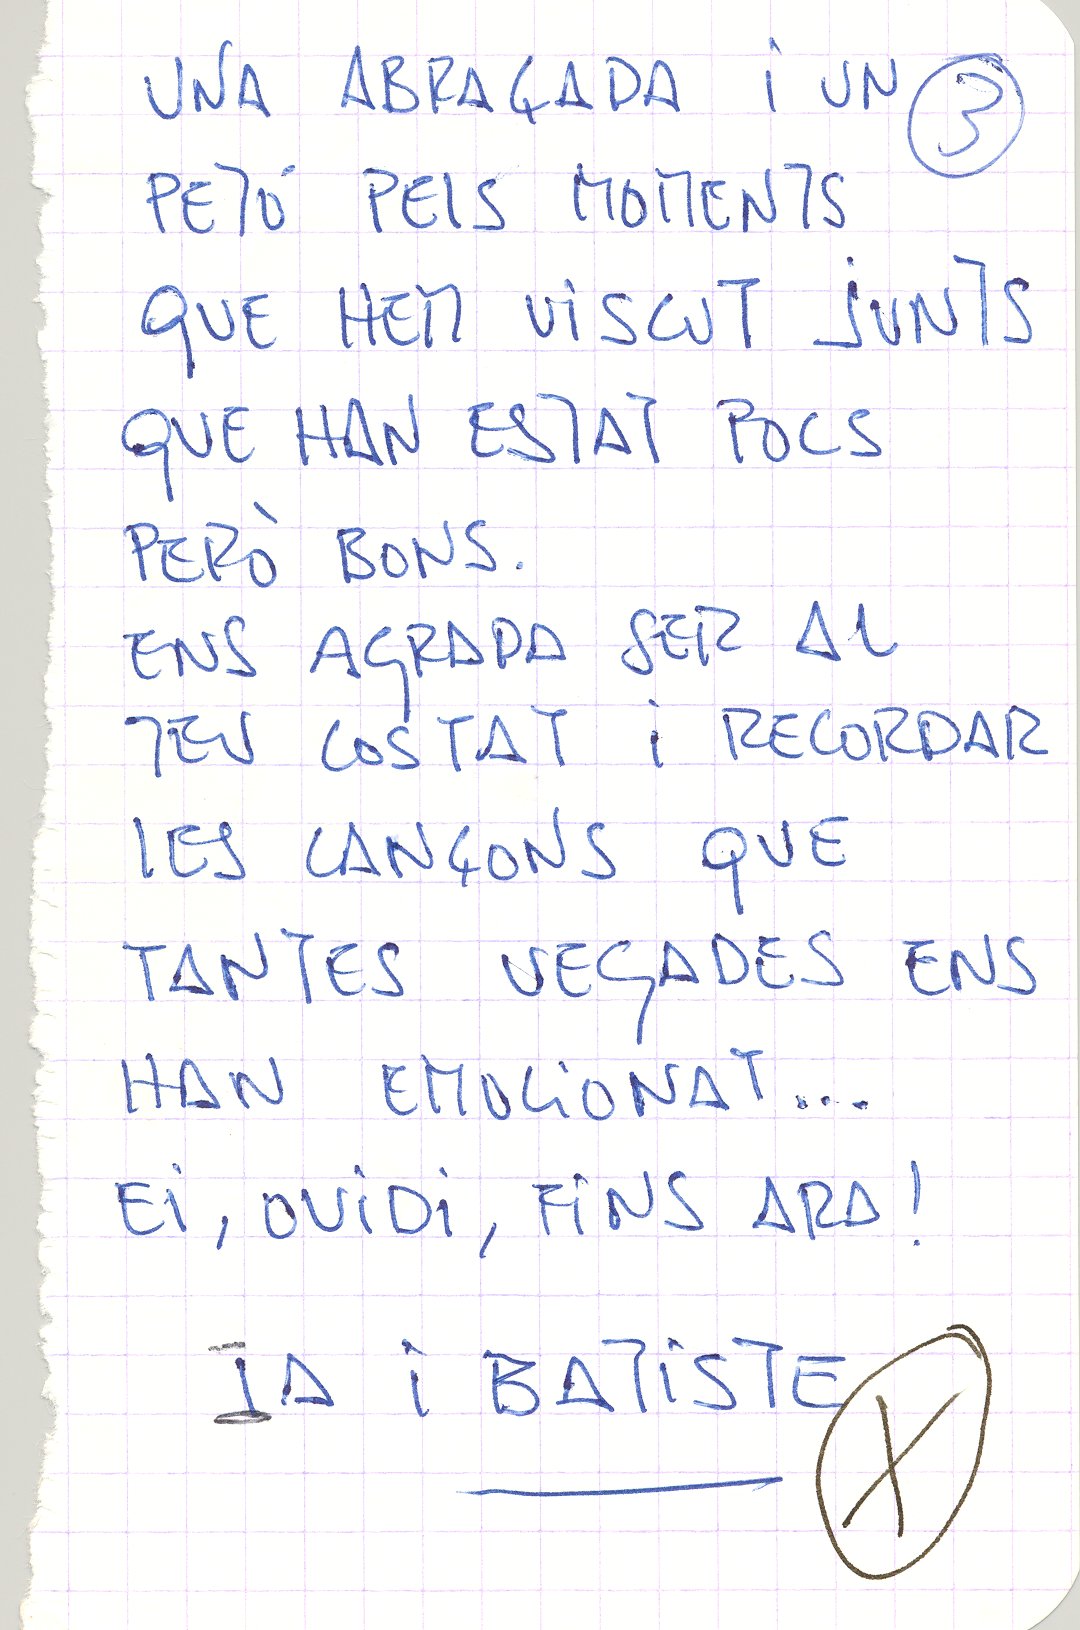 UNA ABRAÇADA i UN 3
PETÓ PELS MOMENTS
QUE HEM VISCUT JUNTS
QUE HAN ESTAT POCS
PERÒ BONS.
ENS AGRADA SER AL
TEU COSTAT i RECORDAR
LES CANÇONS QUE
TANTES VEGADES ENS
HAN EMOCIONAT...
Ei, OVIDI, FINS ARA!
IA i BATISTE
X